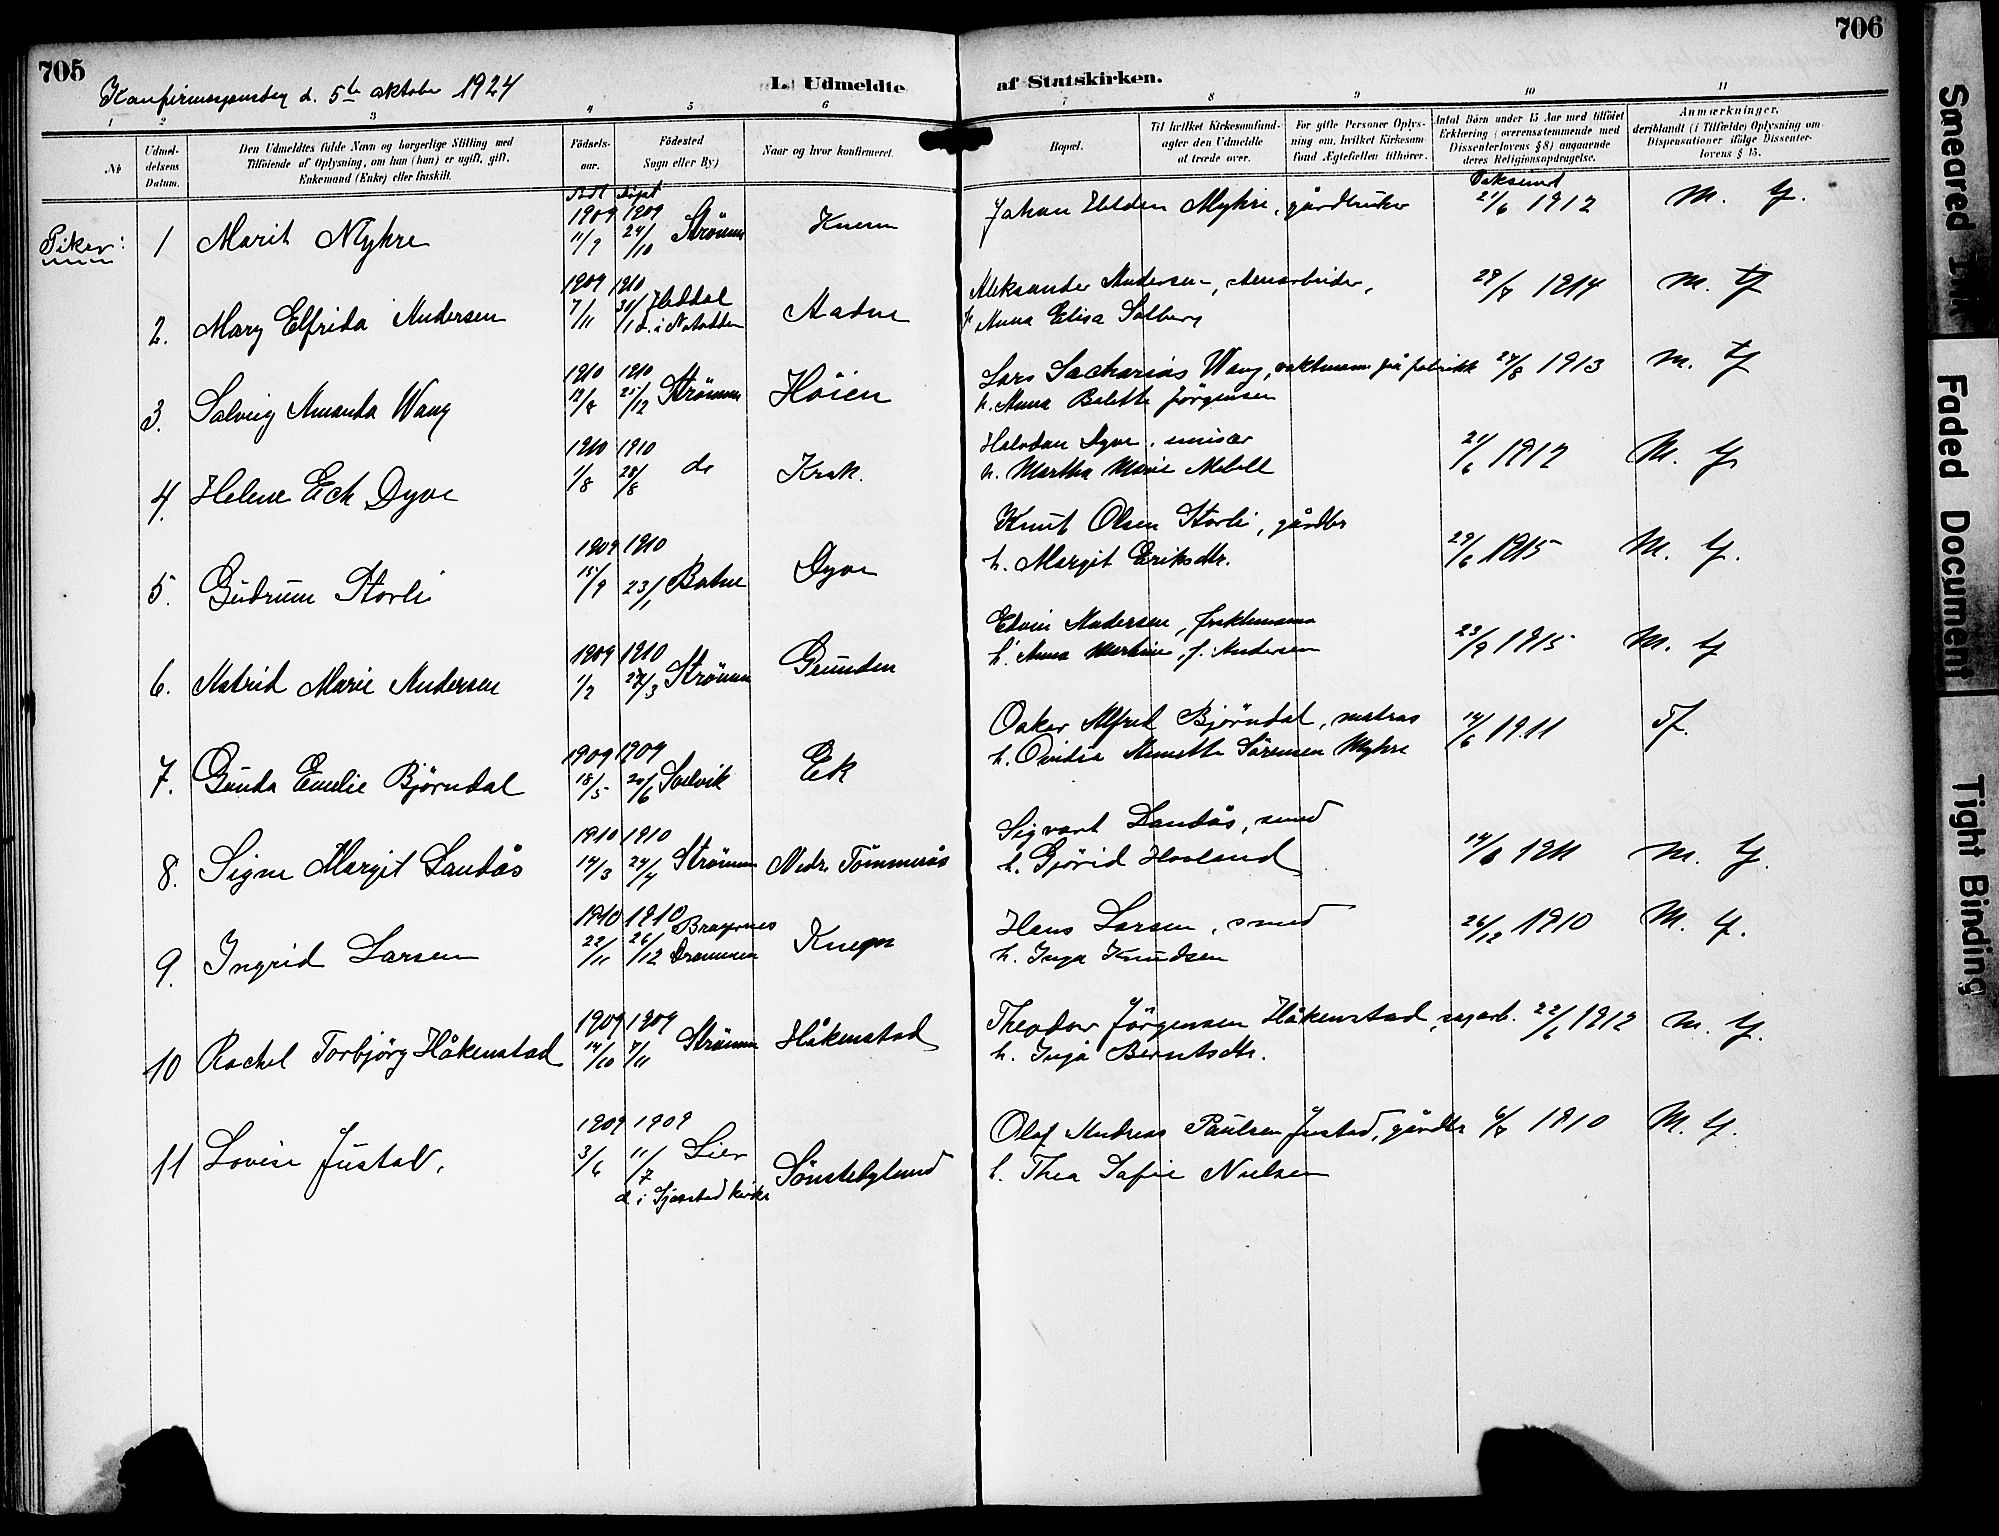 705
706
Konfirmasjonsdag d. 5te oktober 1924
L. Udmeldte
af Statskirken.
1 2 3 4 5 6 7 8 9 10 11
№
Udmel-
delsens
Datum.
Den Udmeldtes fulde Navn og borgerlige Stilling med
Tilföiende af Oplysning, om han (hun) er ugift, gift,
Enkemand (Enke) eller fraskilt.
Födsels-
aar.
Födested
Sogn eller By)
Naar og hvor konfirmeret.
Bopæl.
Til hvilket Kirkesamfund-
agter den Udmeldte
at træde over.
For gifte Personer Oplys-
ning om, hvilket Kirkesam-
fund Ægtefællen tilhörer.
Antal Börn under 15 Aar med tilföiet
Erklæring (overensstemmende med
Dissenterlovens § 8) angaaende
deres Religionsopdragelse.
Anmærkninger,
deriblandt (i Tilfælde) Oplysning om
Dispensationer ifölge Dissenter-
lovens § 15.
Födt döpt
Vaksinert
Piker:
1 Marit Myhre 1909 11/9 1909 24/10 Strömm Johan Halden Myhre, gårdbruker 21/6 1912 M. G.
2. Mary Elfrida Andersen 1909 7/11 1910 30/1 Heddal d. i Notodden Aadne Aleksander Andersen,
h. Anna Elisa Solberg 29/7 1914 M. G
3. Solveig Amanda Wang 1910 12/8 1910 25/12 Strömm Höien Lars Sacharias Wang, vaktmann på fabrikk 27/8 1913 M. G
h. Anna Bolette Jörgensen
4. Helene Eek Dyve 1910 1/8 1910 28/8 do Krok. Halvdan Dyve,
h. Martha Marie 21/6 1912 M. G
5. Gudrun Storli 1909 15/9 1910 23/1 Botne Dyve Knut Olsen Storli, gårdbr
h. Margit Eriksdtr. 29/6 1915 M. G.
6. Astrid Marie Andersen 1909 1/2 1910 Strömm Grunden Edvin Andersen, fraktemann
h. Anna Martine, f. Andersen 23/9 1915 M. G
7. Gunda Emelie Björndal 1909 18/5 1909 20/6 Selvik Ek Oskar Alfred Björndal, matros
h. Ovidia Annette Sörensen Myhre 14/6 1911 Tf.
8. Signe Margit Landås 1910 14/3 1910 24/4 Strömm Nedr. Tömmerås Sigvart Landås, smed
h. Gjörid Hovland 14/8 1911 M. G.
9. Ingrid Larsen 1910 22/11 1910 26/12 Bragernes Drammen Hans Larsen, smed
h. Inga Knudsen 26/12 1910 M. G.
10 Rachel Torbjörg Håkenstad 1909 14/10 1909 7/11 Strömm Håkenstad Theodor Jörgensen Håkenstad, sagarb. 22/6 1912 M. G.
h. Inga Berntsdtr.
11 Lovise Justad. 1909 3/6 1909 11/7 Lier d i Sjåstad kirke Sönstebylund Olaf Andreas Paulsen Justad, gårdbr 6/7 1910 M. G.
h. Thea Sofie Nielsen
Smeared Ink
Faded Document
Tight Binding